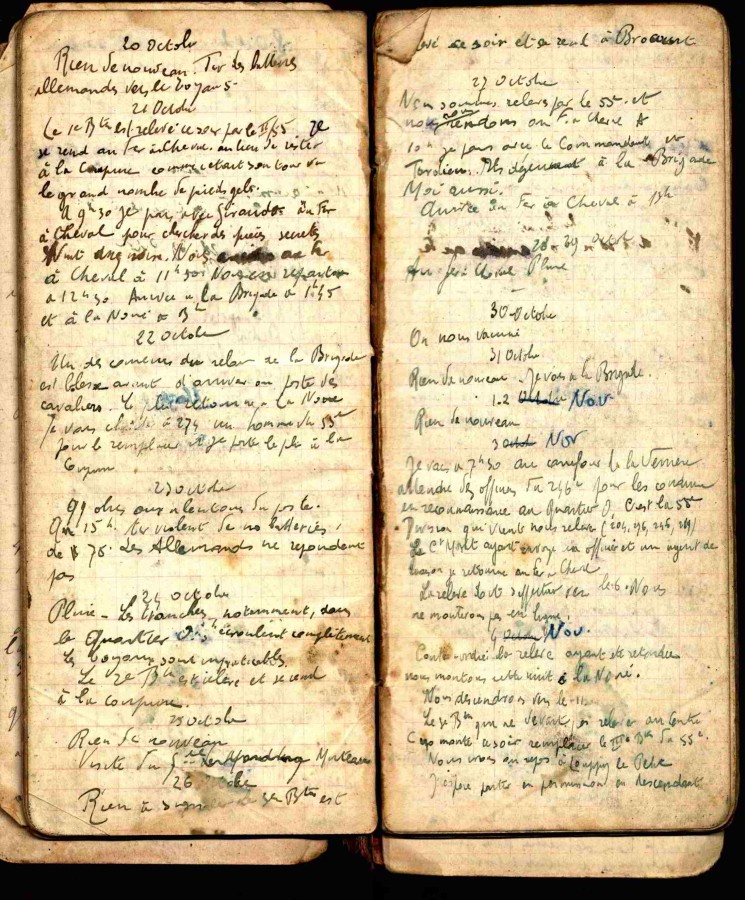 20 Octobre
Rien de nouveau. Tir des batteries
allemandes vers le boyau 5
21 Octobre
Le 1er Btn est relevé ce soir par le II/55. Je
se rend au Fer à Cheval au lieu de rester
à la Coupure comme c'était son tour vu
le grand nombre de pieds gelés.
A 9h30 je pars avec Giraudot au Fer
à Cheval pour chercher des pièces secrets
Nuit très noire. Nous au Fer
à Cheval à 11h30. Nous en repartons
à 12h30. Arrivée à la Brigade à 1h45
et à la Noué à 3h
22 Octobre
Un des coureurs du relai de la Brigade
est blessé avant d'arriver au poste des
cavaliers. Le pli retourne à la Noué
Je vais à 274 un homme du 55e
pour le remplacer et je porte le pli à la
23 Octobre
99 obus aux alentours du poste.
Qu 15h. tir violent de nos batteries
de 75. Les Allemands ne répondent
pas
24 Octobre
Pluie - Les tranches, notamment, dans
le Quartier s'écroulent complètement
Les boyaux sont impraticables.
Le 2e Btn est relevé et se rend
à la coupure.
25 Octobre
Rien de nouveau
Visite du
26 Octobre
Rien à signaler Le 3e Btn est
relevé ce soir et se rend à Brocourt
27 Octobre
Nous sommes relevés par le 55e et
nous rendons au Fer à Cheval A
10h je pars avec le Commandant et
Tardieu. Ils déjeunent à la Brigade
Moi aussi.
Arrivée au Fer à Cheval à 15h
28-29 Octobre
Au fer à Cheval Pluie
30 Octobre
On nous vaccine
31 Octobre
Rien de nouveau - Je vais à la Brigade.
1-2 Octobre Nov
Rien de nouveau
3 Octob Nov
Je vais à 7h30 au carrefour de la Verrerie
attendre des officiers du 246e pour les conduire
en reconnaissance au Quartier O. C'est la 55e
Division qui vient nous relever (204, 246, 289)
Le Ct ayant envoyé un officier et un agent de
liaison je retourne au Fer à Cheval
La relève doit s'effectuer vers le 6. Nous
ne monterons pas en ligne.
4 Octobre Nov.
Contre-ordre: la relève ayant été retardée
nous montons cette nuit à la Noué.
Nous descendrons vers le 11
Le 3e Btn qui ne devait, en relever au Centre
C monte ce soir remplacer le IIIe Btn du 55e.
Nous irons au repos à Louppy le Petit
J'espère partir en permission en descendant